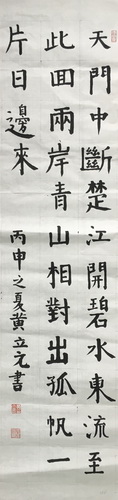 天門中斷楚江開碧水東流至
此回兩岸青山相對出孤帆一
片日邊來
丙申之夏黃立元書